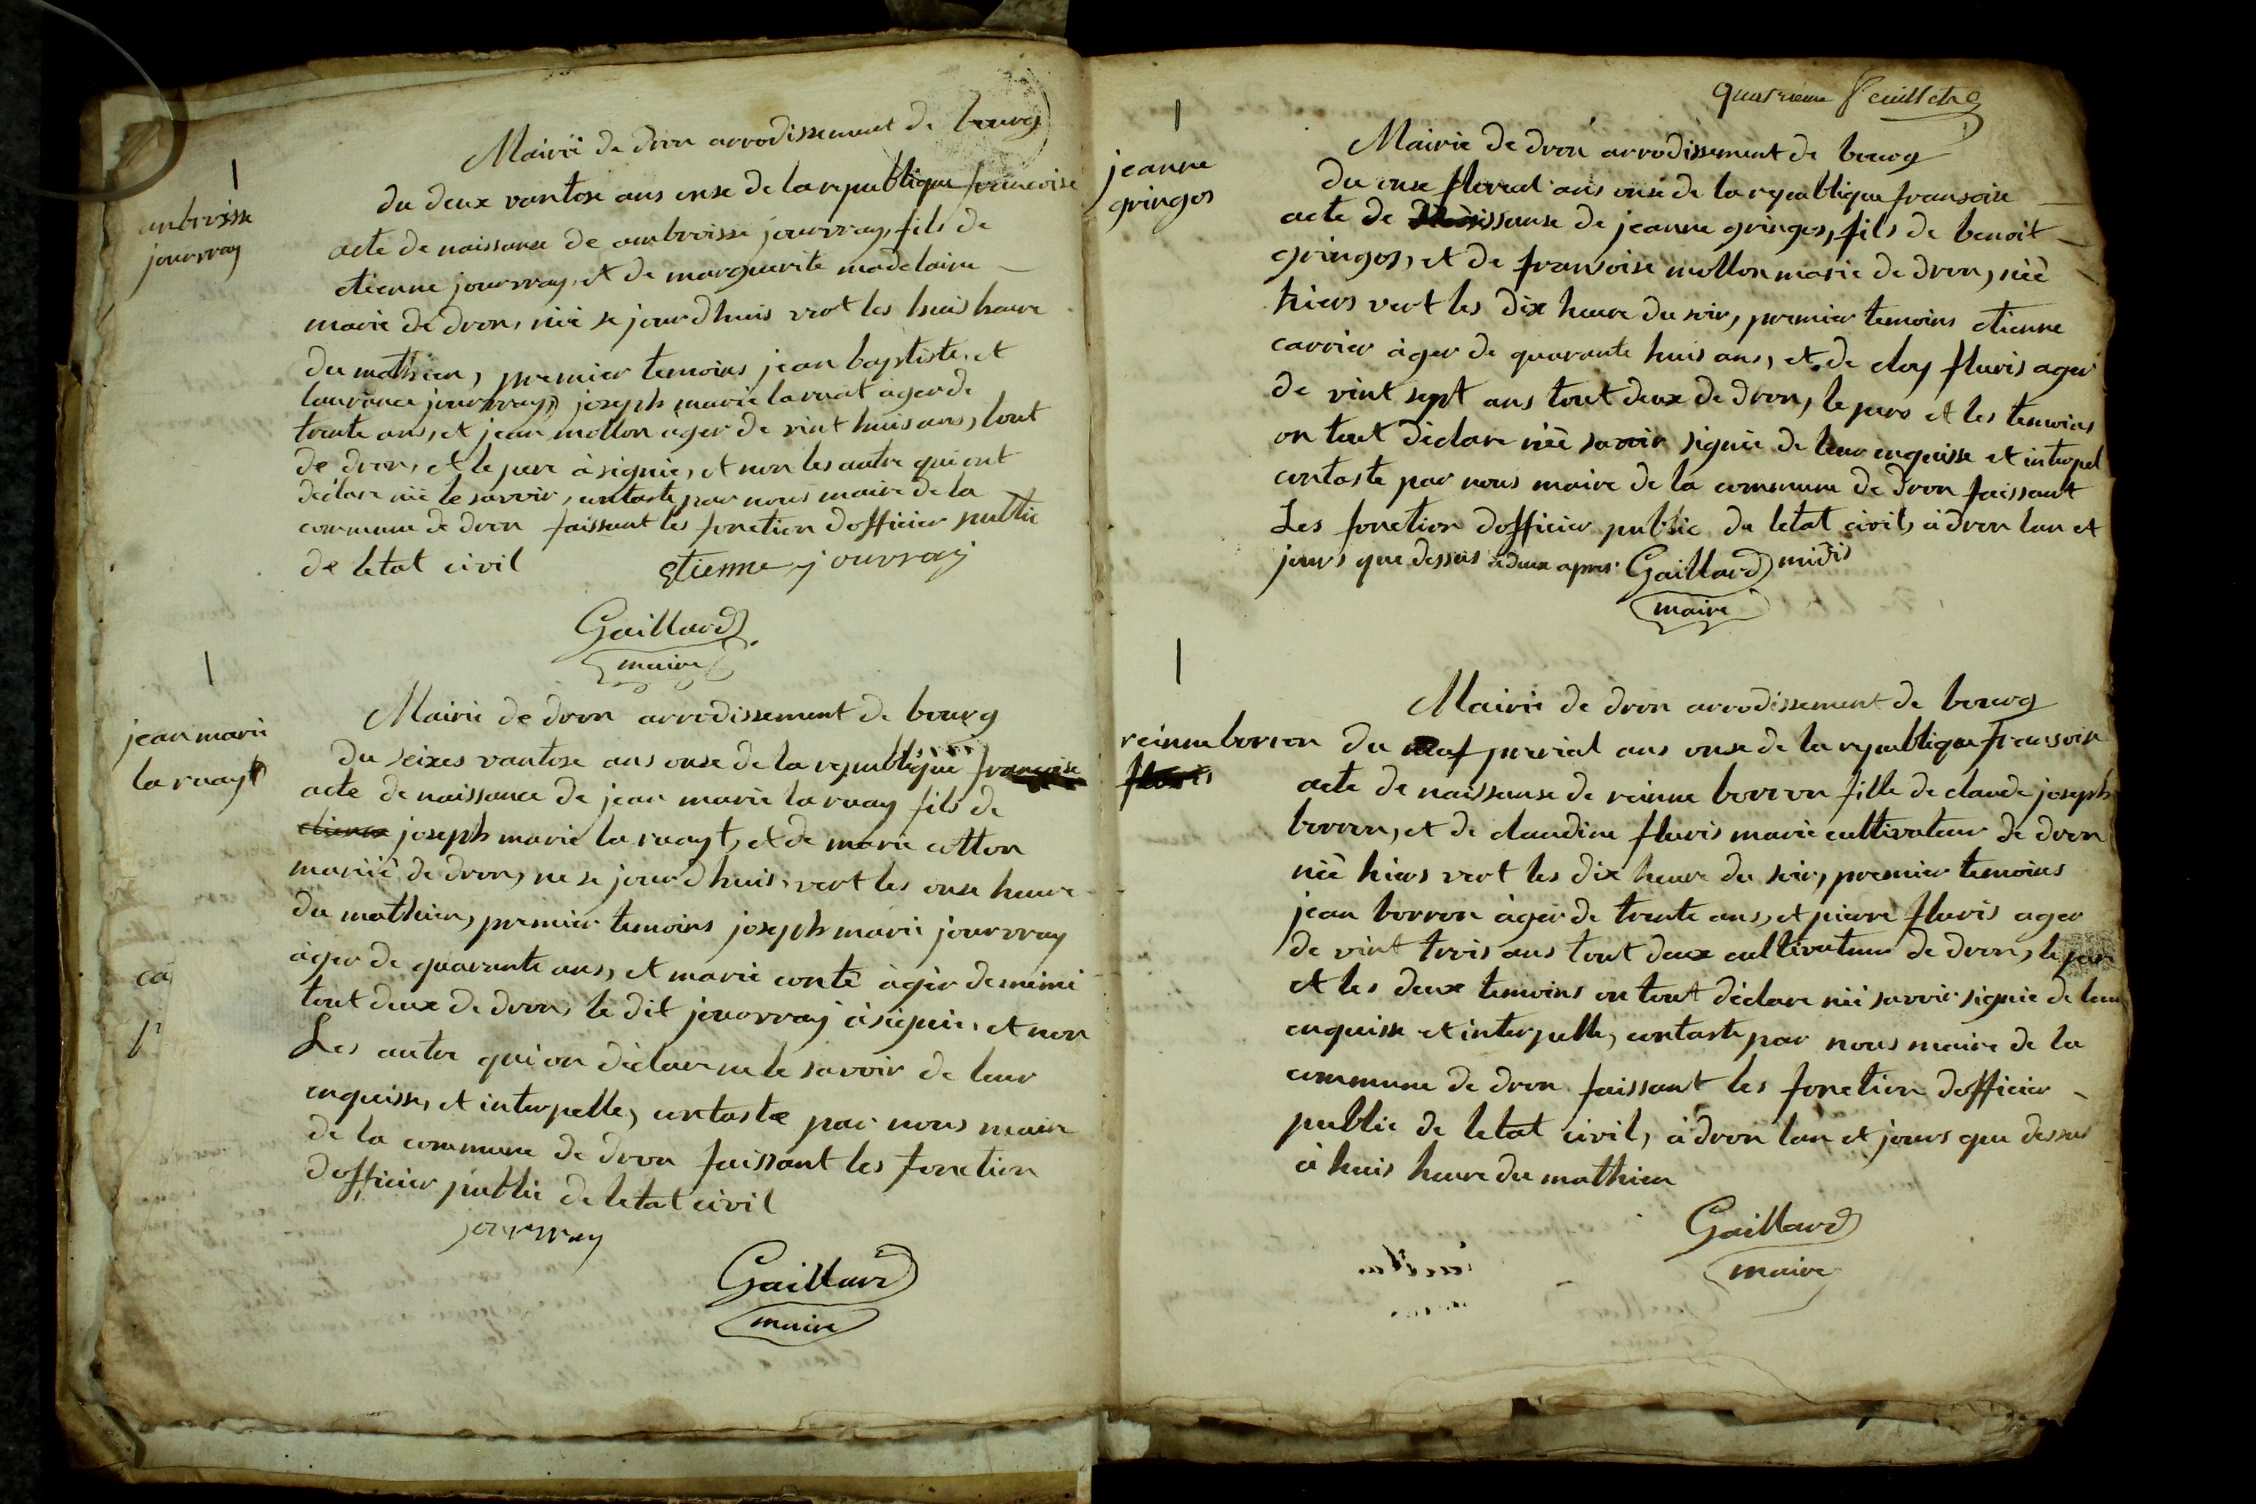 ambroisse
jourvray
Mairie de dron arrodissement de bourg
du deux vantose ans onse de la republique francoise
acte de naissanse de ambroisse jourvray, fils de
etienne jourvray, et de marguerite madelaine
marie de dron, néé se jourdhuis vert les huis heure
du mathien, premier temoins jean baptiste, et
laurance jourvray, joseph marie laruat ager de
trente ans, et jean mollon ager de vint huis ans, tout
de dron, et le pere à signie, et non les autre qui ont
déclare néé le savoir, contaste par nous maire de la
commune de dron faissant les fonction dofficier public
de letat civil
etienne jourvray
Gaillard
maire
jean marie
la ruayt
Mairie de dron arrodissement de bourg
du seixes vantose ans onse de la republique françoise
acte de naissance de jean marie la ruay fils de
etienne joseph marie la ruayt, et de marie cotton
mariié de dron, ne se jourdhuis, vert les onse heure
du mathien, premier temoins joseph marie jourvray
àger de quarante ans, et marie conte àgér de mimé
tout deux de dron, le dit jouorray à signie, et non
Les autre qui on déclare ne le savoir de leur
enquisse, et interpelle, contaste par nous maire
de la commune de dron faissant les fonction
dofficier public de letat civil
jourvray
Gaillard
maire
quatrieme feuillet
jeanne
gringos
Mairie de dron arrodissement de bourg
du onse floreal ans onse de la republique fransoise
acte de naissanse de jeanne gringos, fils de benoit
gringos, et de fransoise mollon marie de dron, néé
hiers vert les dix heure du soir, premier temoins etienne
carrier àger de quarante huis ans, et de eloy fluris ager
de vint sept ans tout deux de dron, le pere et les temoins
on tout déclare néé savoir signie de leur enquisse et interpel
contaste par nous maire de la commune de dron faissant
Les fonction dofficier public de letat civil, à dron lan et
jours que dessus à deux apres midis
Gaillard
maire
reinne borron
fluris
Mairie de dron arrodissement de bourg
du neuf prerial ans onse de la republique fransoise
acte de naissanse de reinne borron fille de claude joseph
borron, et de claudine fluris marie cultivateur de dron
néé hiers vert les dix heure du soir, premier temoins
jean borron àger de trente ans, et pierre fluris ager
de vint trois ans tout deux cultivateur de dron, le pere
et les deux temoins on tout déclare néé savoir signie de leur
enquisse et interpelle, contaste par nous maire de la
commune de dron faissant les fonction dofficier
public de letat civil, à dron lan et jours que dessus
à huis heure du mathien
Gaillard
maire